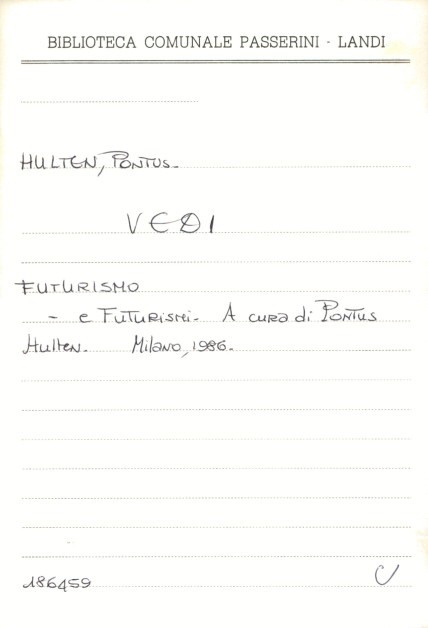 BIBLIOTECA COMUNALE PASSERINI - LANDI
HULTEN, PONTUS.
VEDI
FUTURISMO
- e FUTURISMI. A cura di PONTUS
Hulten. Milano, 1986.
186459